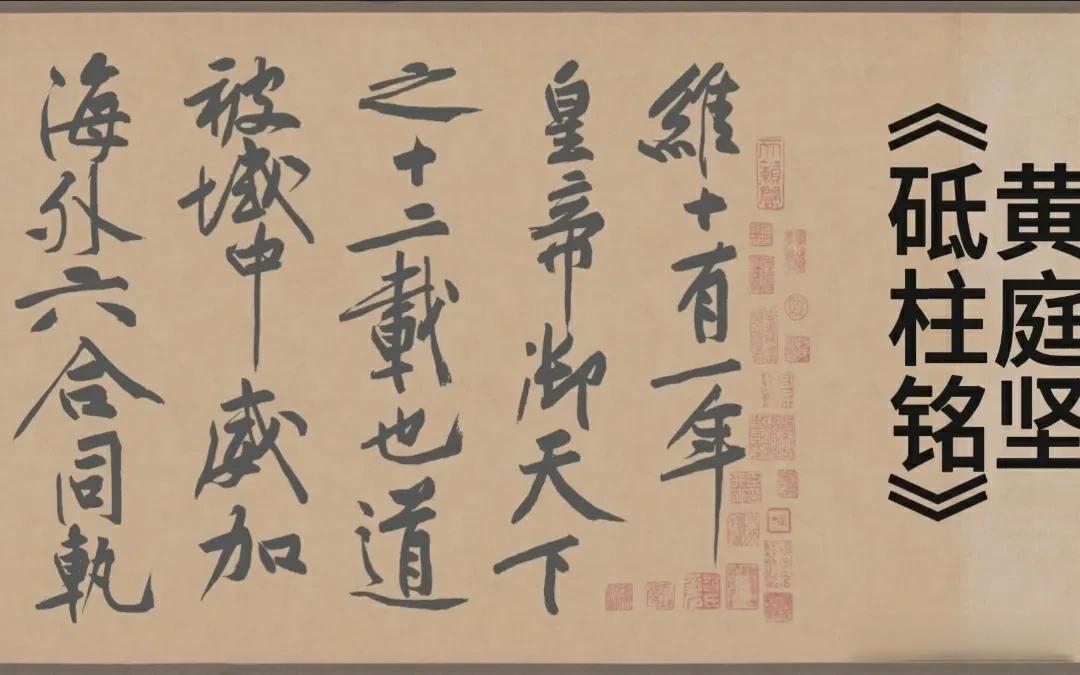 黄庭坚
《砥柱铭》
維十有一年
皇帝御天下
之十二載也道
被域中威加
海外六合同軌